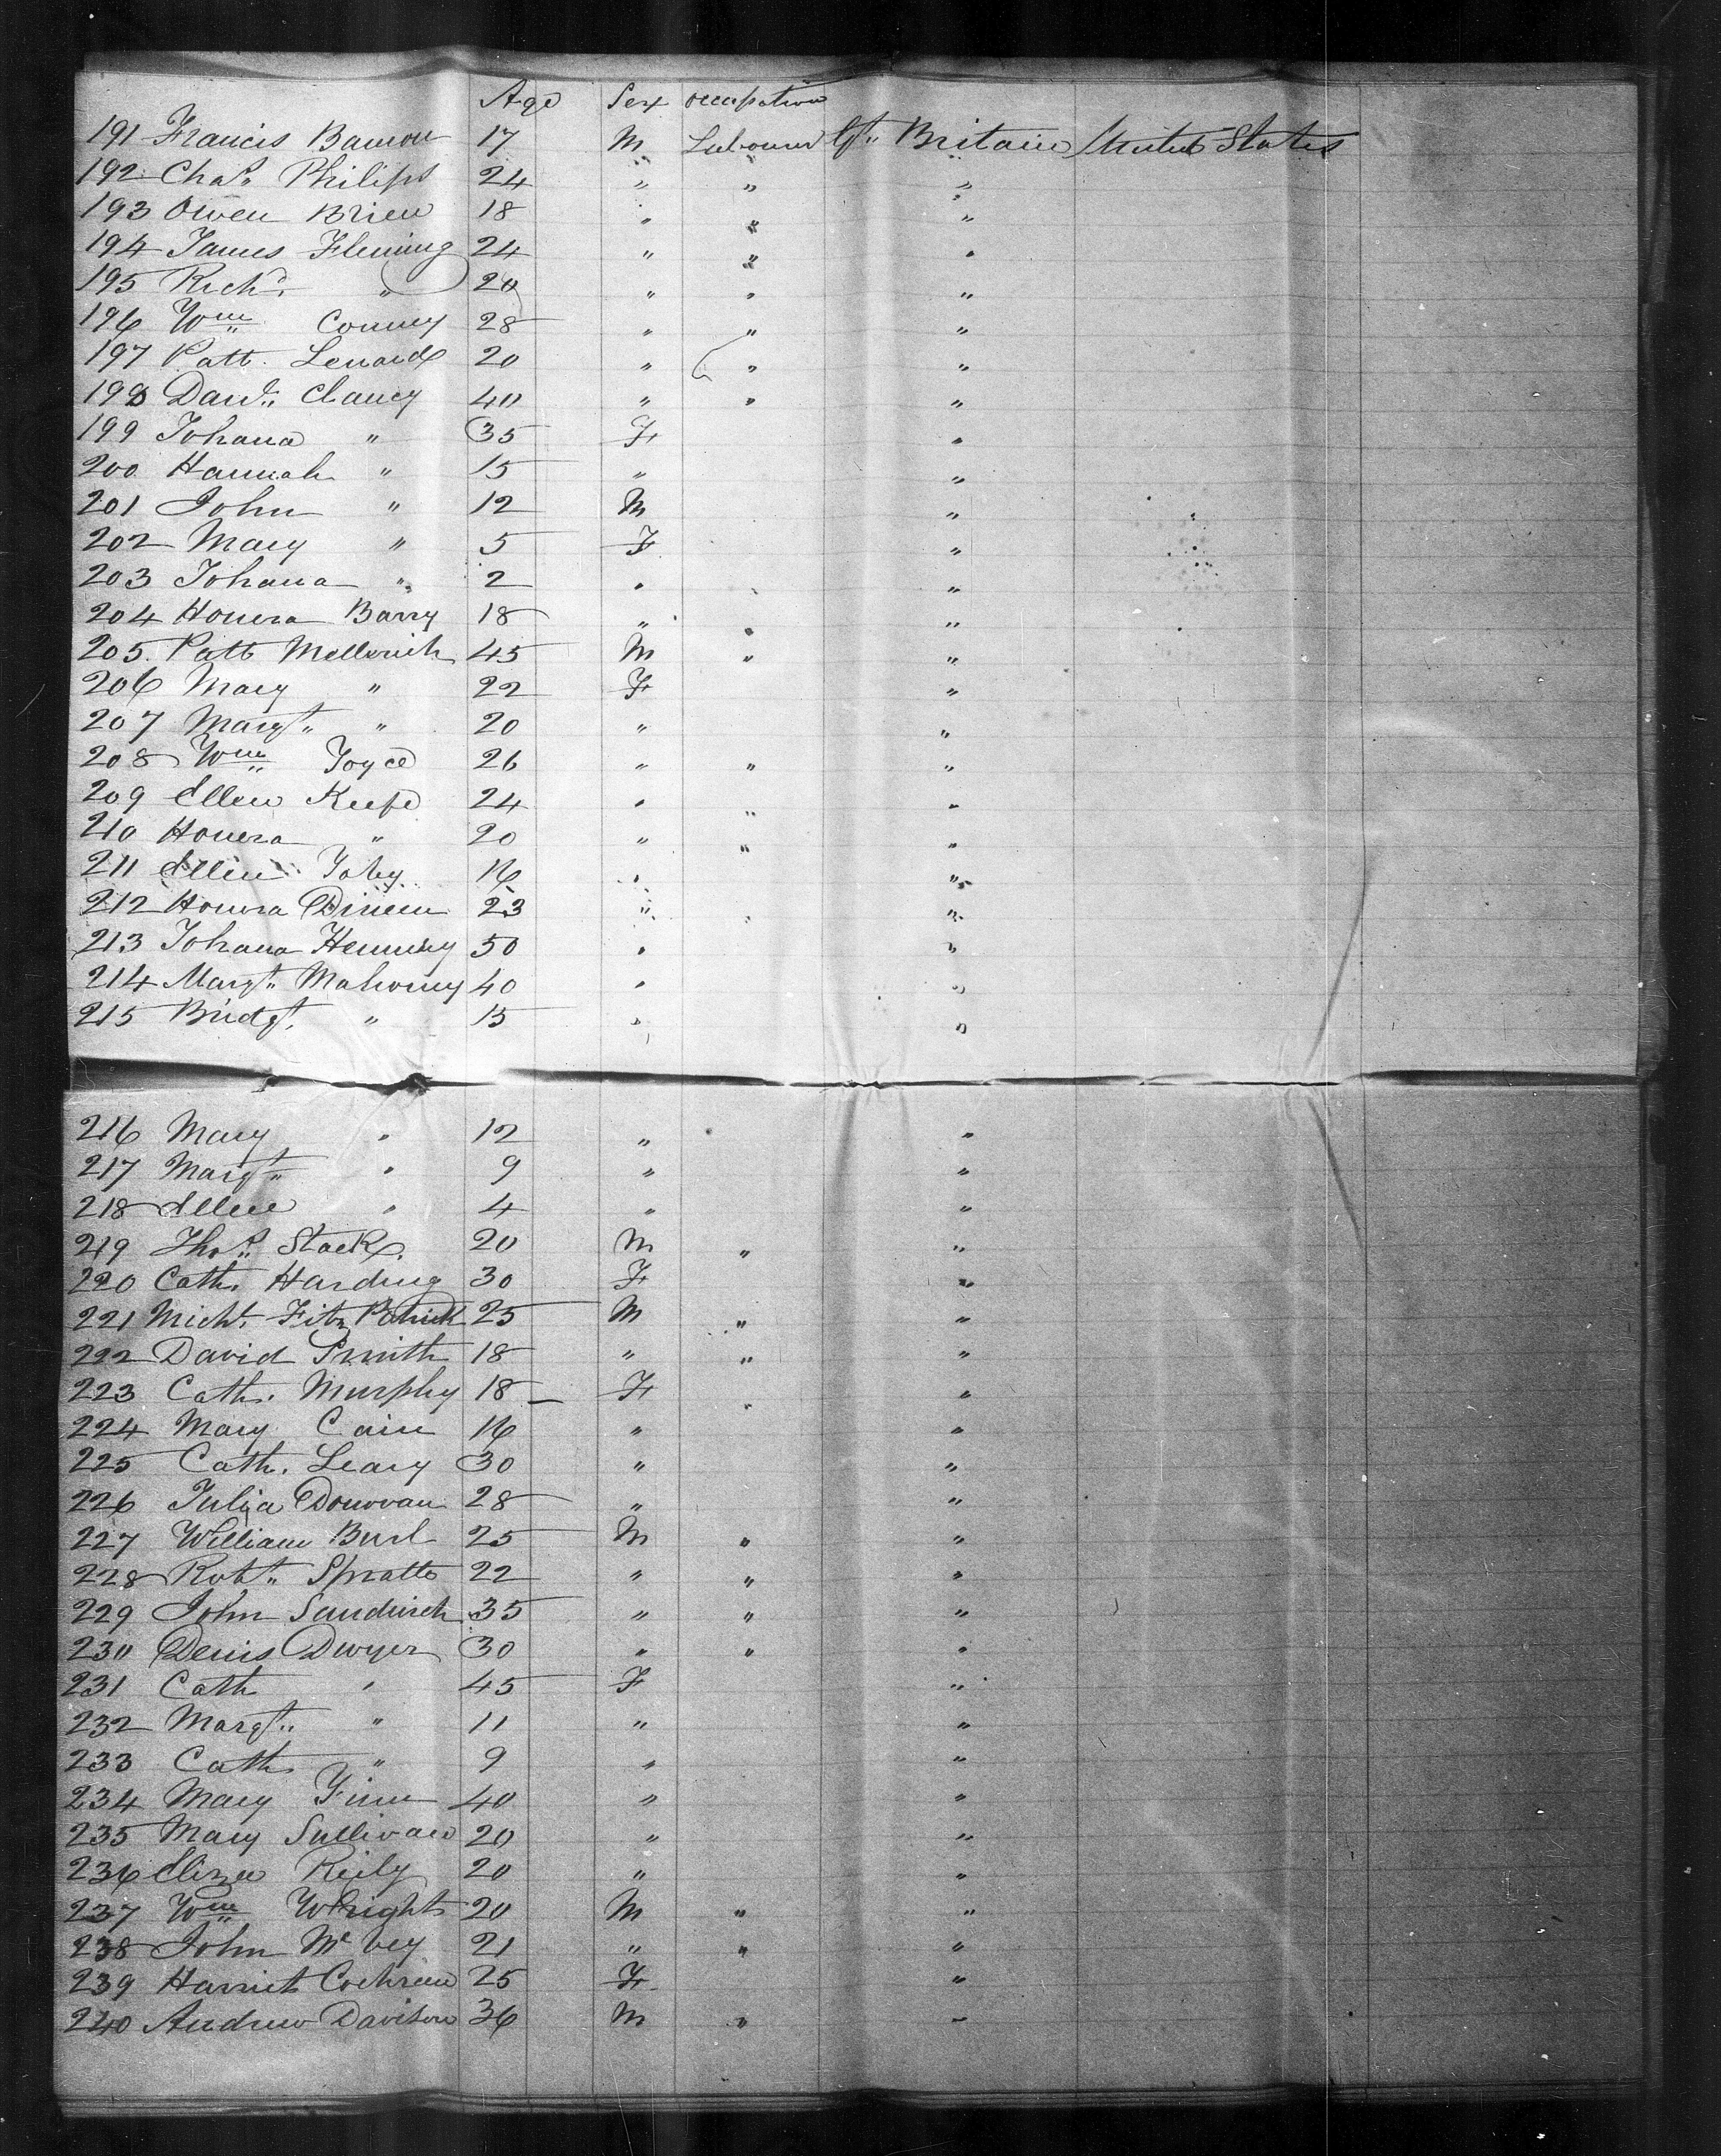 Age Sex occupation
191 Francis 17 M Labourer Gt. Britain United States
192 Chas. Philips 24 " " "
193 Owen Brien 18 " " "
194 James Fleming 24 " " "
195 Richd. " 20 " " "
196 Wm. Conney 28 " " "
197 Patt. Lenard 20 " " "
198 Danl. Clancy 40 " " "
199 Johana " 35 F "
200 Hannah " 15 " "
201 John " 12 M "
202 Mary " 5 F "
203 Johana " 2 " "
204 Honera Barry 18 " " "
205 Patt 45 M " "
206 Mary " 22 F "
207 Margt. " 20 " "
208 Wm. Joyce 26 " " "
209 Ellen Keefe 24 " " "
210 Honera " 20 " " "
211 Ellen 16 " "
212 Honera Dineen 23 " "
213 Johana 50 " "
214 Margt. Mahoney 40 " "
215 Bridgt. " 15 " "
216 Mary " 12 " "
217 Margt. " 9 " "
218 Ellen " 4 " "
219 Thos. Stack 20 M " "
220 Cath. Harding 30 F "
221 Michl. Fitz Patrick 25 M " "
222 David Smith 18 " " "
223 Cath. Murphy 18 F "
224 Mary Cain 16 " "
225 Cath. Leary 30 " "
226 Julia Donovan 28 " "
227 William 25 M " "
228 Robt. Spratt 22 " " "
229 John 35 " " "
230 Denis Dwyer 30 " " "
231 Cath " 45 F "
232 Margt. " 11 " "
233 Cath " 9 " "
234 Mary Finn 40 " "
235 Mary Sullivan 20 " "
236 Eliza Reily 20 " "
237 Wm. Wright 20 M " "
238 John McVey 21 " " "
239 Harriet Cochran 25 F "
240 Andrew Davison 36 M " "